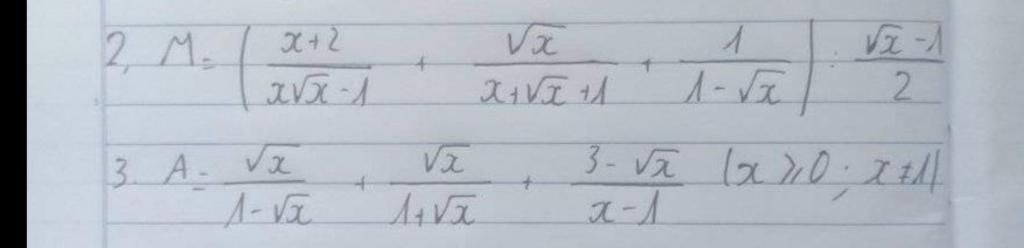 2, M = ( (x+2)/(x√x - 1) + √x/(x+√x+1) + 1/(1-√x) ) : (√x - 1)/2
3. A = √x/(1-√x) + √x/(1+√x) + (3-√x)/(x-1) (x ⩾ 0 ; x ≠ 1)